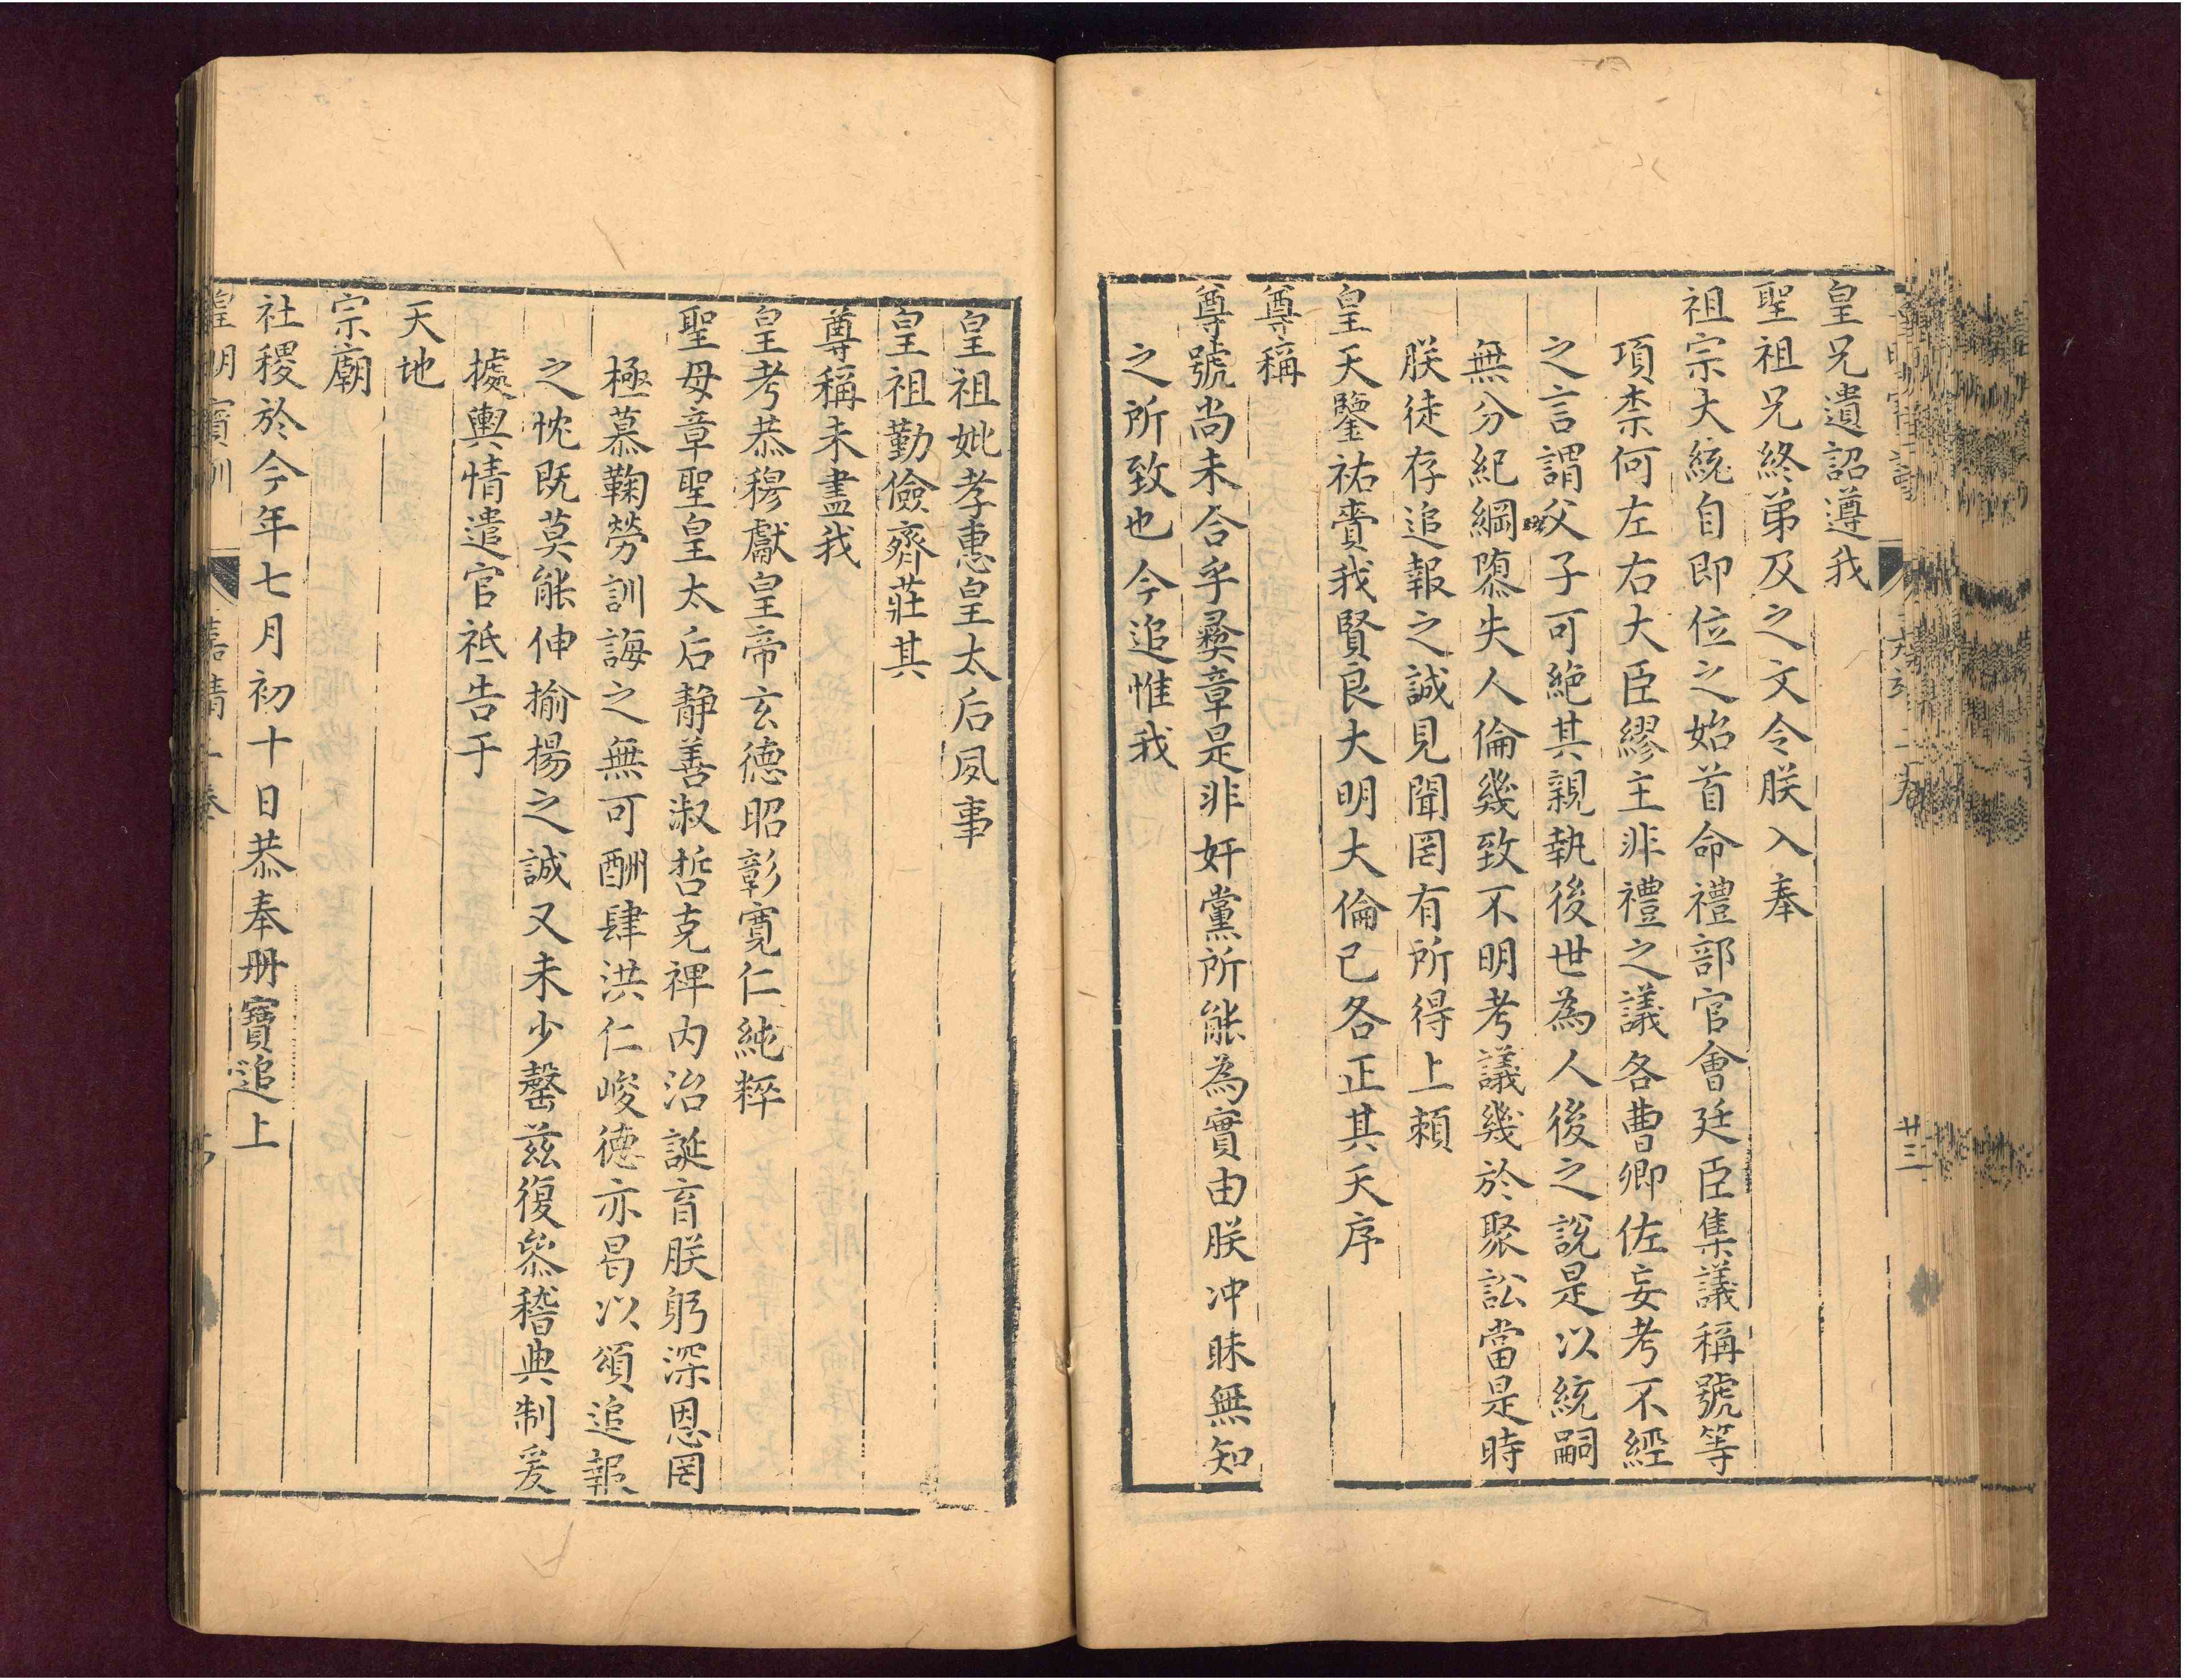 皇兄遺詔遵我
聖祖兄終弟及之文令朕入奉
祖宗大統自即位之始首命禮部官會廷臣集議稱號等
項柰何左右大臣繆主非禮之議各曹卿佐妄考不經
之言謂父子可絶其親執後世為人後之說是以統嗣
無分紀綱隳失人倫幾致不明考議幾於聚訟當是時
朕徒存追報之誠見聞罔有所得上賴
皇天鑒祐賚我賢良大明大倫已各正其天序
尊稱
尊號尚未合乎彝章是非奸黨所能為實由朕冲昧無知
之所致也今追惟我
廿三
皇祖妣孝惠皇太后夙事
皇祖勤儉齊莊其
尊稱未盡我
皇考恭穆獻皇帝玄德昭彰寬仁純粹
聖母章聖皇太后静善淑哲克禆内治誕育朕躬深恩罔
極慕鞠勞訓誨之無可酬肆洪仁峻德亦曷以頌追報
之忱既莫能伸揄揚之誠又未少罄兹復叅稽典制爰
據輿情遣官祗告于
天地
宗廟
社稷於今年七月初十日恭奉册寶追上
皇明寶訓
嘉靖二卷